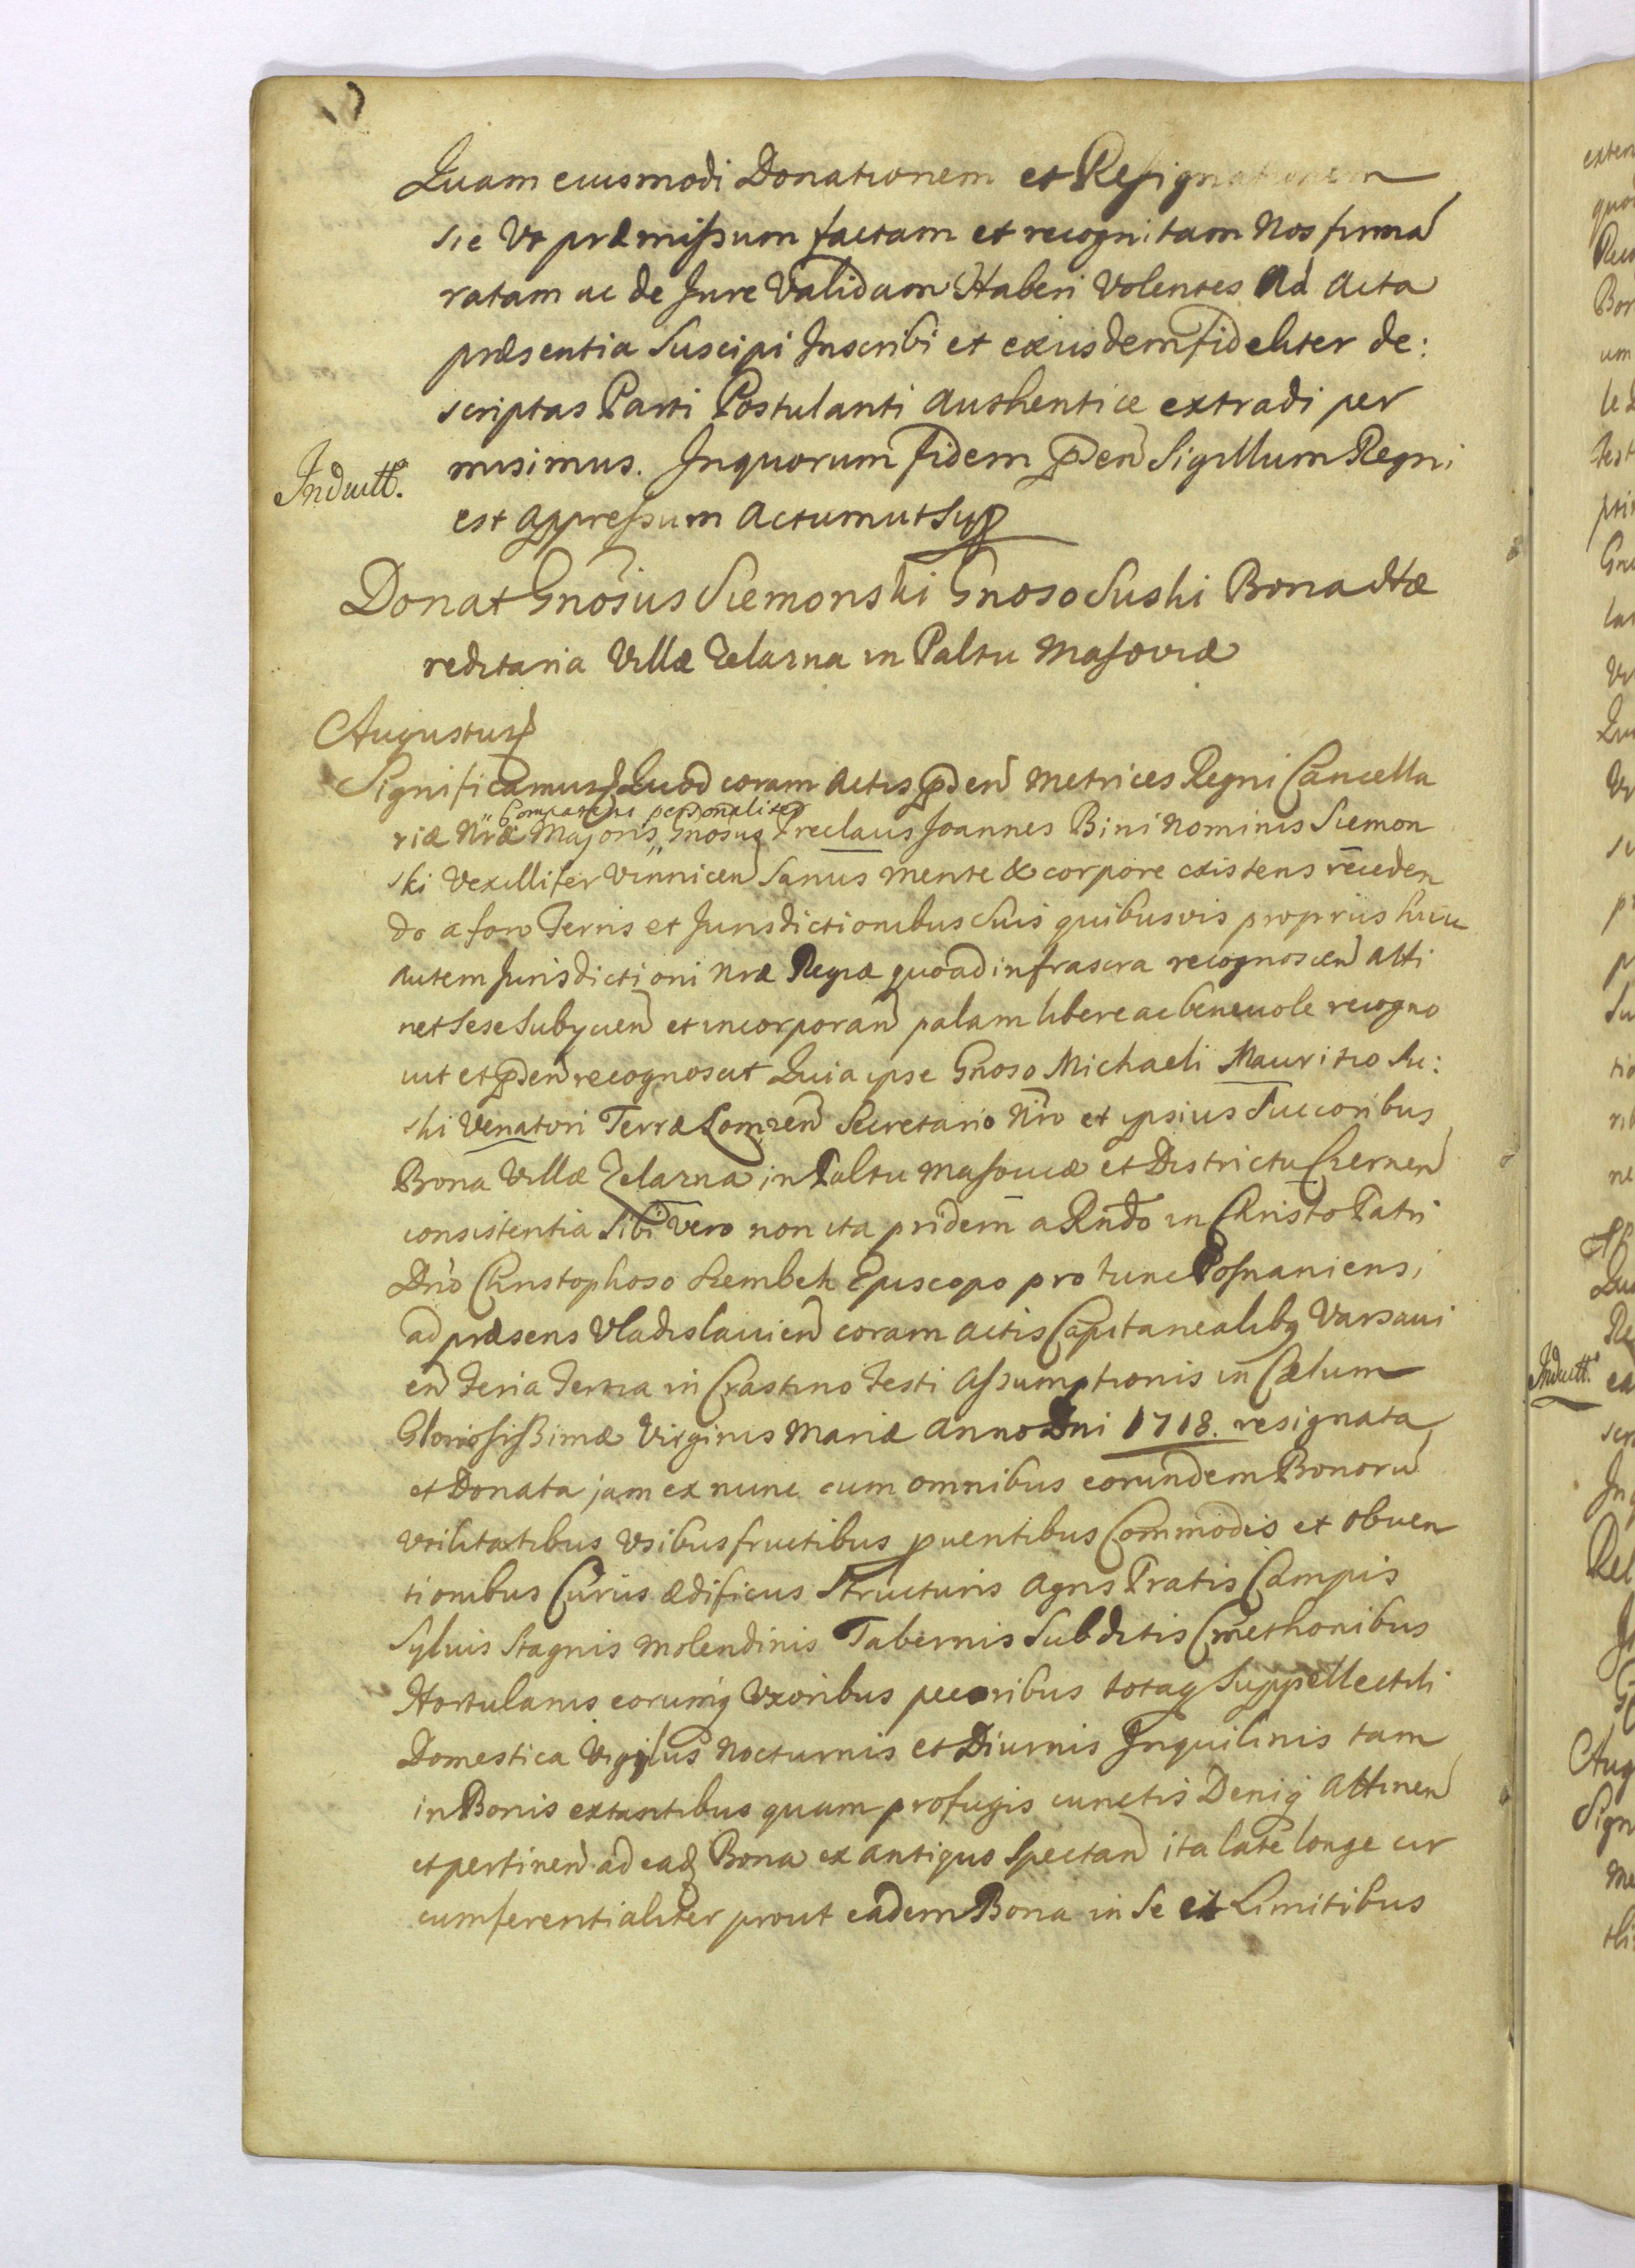 Quam eiusmodi Donationem et Resignationem
sic Vt præmissum factam et recognitam Nos firmã
ratam ac de Jure Validam Haberi Volentes Ad Acta
præsentia Suscipi Inscribi et exiisdem fideliter de:
scriptas Parti Postulanti Authentice extradi per
misimus. Inquorum fidem Sigillum Regni
Induxtt.
est Appressum Actum ut
Donat Gnosus Siemonski Gnoso Suski Bona Hæ
reditaria Villæ Zelazna in Paltu Masoviæ
Augustus
Significamus Quod coram Actis Metrices Regni Cancella
Comparens personaliter
riæ Nræ Majoris Gnosus Joannes Bini Nominis Siemon
ski Vexillifer Vinnicen Sanus mente & corpore existens receden
do a foro Terris et Jurisdictionibus Suis quibusvis proprijs huic
autem Jurisdictioni Nræ Regiæ quoad infrascra recognoscen Atti
net Sese Subijcien et incorporan palam libere ac beneuole recogno
uit et recognoscit Quia ipse Gnoso Michaeli Mauritio Su:
ski Venatori Terræ Lomzen Secretario Nro et ipsius Succoribus
Bona Villæ Zelazna in Paltu Masouiæ et Districtu Czernen
consistentia Sibi vero non ita pridem a Rndo in Christo Patri
Dno Christophoro Szembek Episcopo pro tunc Posnaniensi
ad præsens Vladislauien coram Actis Capitanealibq Varsaui
en Feria Tertia in Crastino Festi Assumptionis in Cælum
Gloriosissimæ Virginis Mariæ Anno Dni 1718. resignata
et Donata jam ex nunc cum omnibus eorundem Bonorũ
Vtilitatibus Vsibusfructibus puentibus Commodis et obuen
tionibus Curiis ædificiis Structuris Agris Pratis Campis
Syluis Stagnis Molendinis Tabernis Subditis Cmethonibus
Hortulanis eorumq Vxoribus pecoribus totaq Suppellectili
Domestica Vigiliis Nocturnis et Diurnis Inquilinis tam
in Bonis extantibus quam profugis cunctis Deniq Attinen
et pertinen ad ead Bona ex antiquo Spectan ita late longe cir
cumferentialiter prout eadem Bona in Se et Limitibus